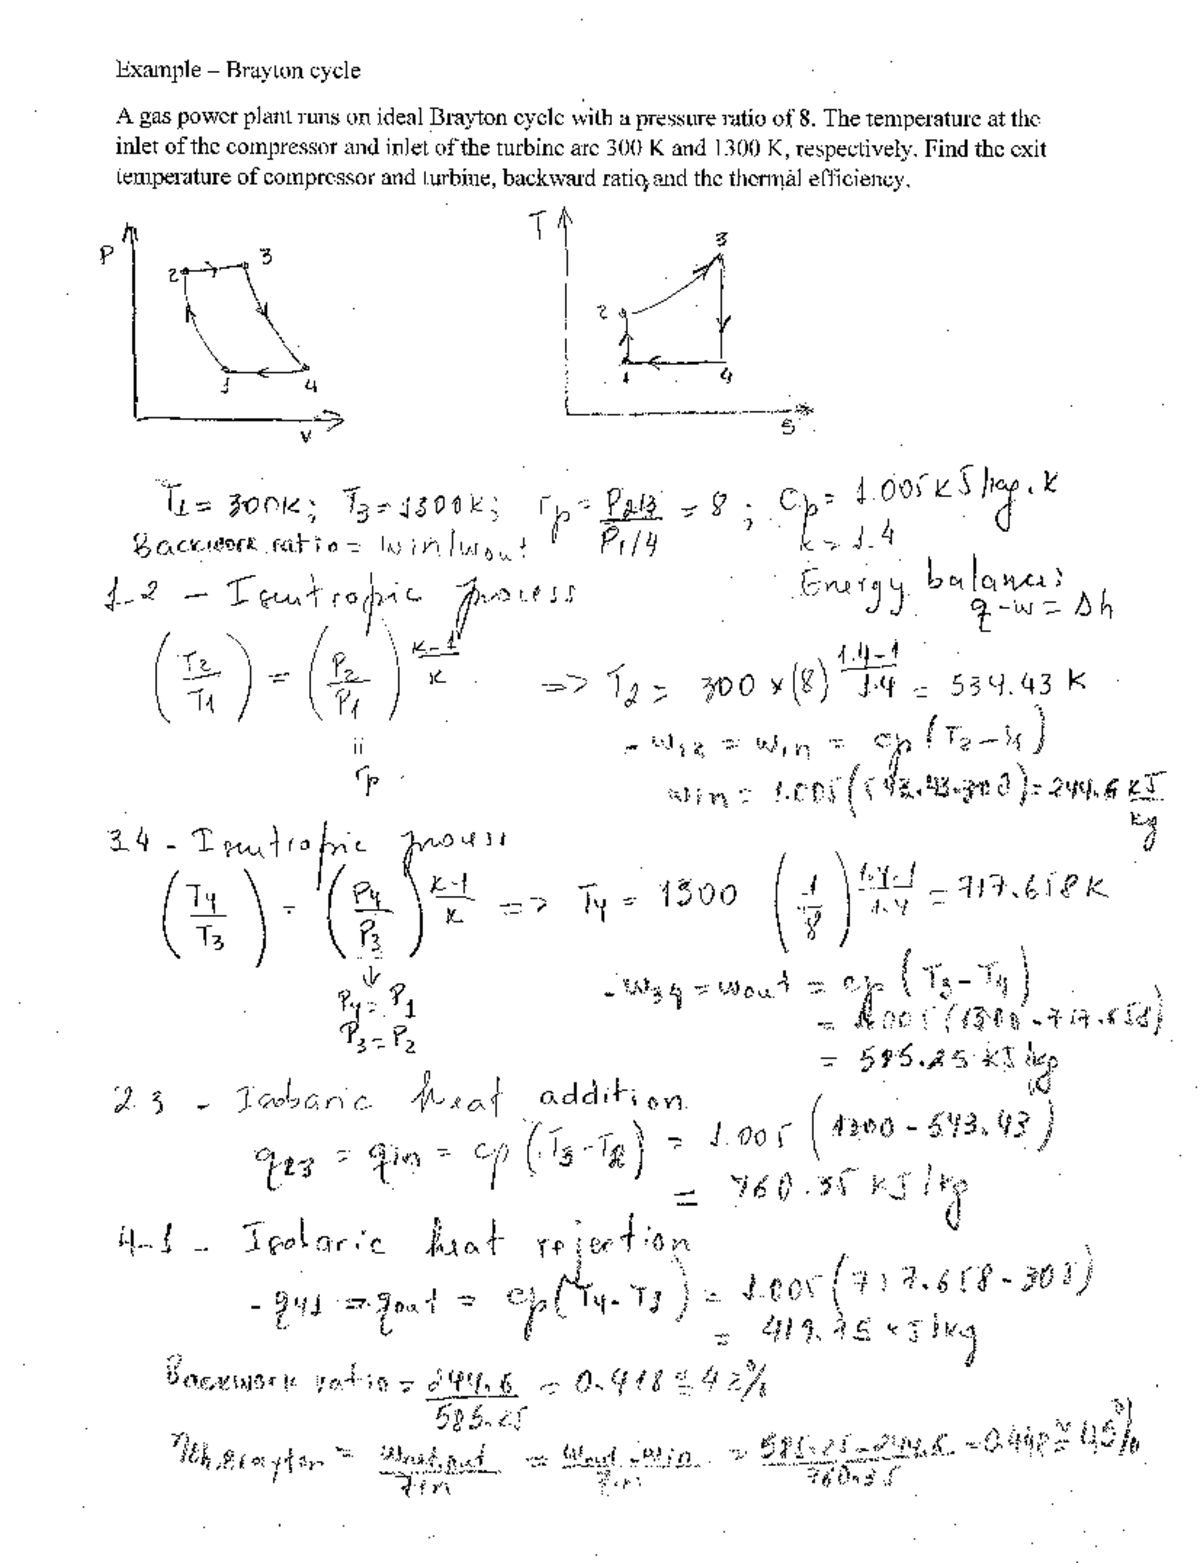 Example – Brayton cycle
A gas power plant runs on ideal Brayton cycle with a pressure ratio of 8. The temperature at the
inlet of the compressor and inlet of the turbine are 300 K and 1300 K, respectively. Find the exit
temperature of compressor and turbine, backward ratio, and the thermal efficiency.
P 2 3 1 4 V
T 2 3 1 4 S
T1 = 300K; T3 = 1300K; rp = P2/3 / P1/4 = 8; Cp = 1.005 KJ/kg.K
Backwork ratio = win/wout k = 1.4
Energy balance:
q-w = Δh
1-2 - Isentropic process
(T2/T1) = (P2/P1)^(K-1/K) => T2 = 300 x (8)^(1.4-1/1.4) = 534.43 K
= rp
-w12 = win = cp (T2-T1)
win = 1.005 (543.43-300) = 244.6 KJ/kg
3.4 - Isentropic process
(T4/T3) = (P4/P3)^(K-1/K) => T4 = 1300 (1/8)^(1.4-1/1.4) = 717.658 K
↓
P4 = P1
P3 = P2
-w34 = wout = cp (T3-T4)
= 1.005 (1300-717.658)
= 585.25 KJ/kg
2.3 - Isobaric heat addition
q23 = qin = cp (T3-T2) = 1.005 (1300-543.43)
= 760.35 KJ/kg
4-1 - Isobaric heat rejection
-q41 = qout = cp (T4-T1) = 1.005 (717.658-300)
= 419.75 KJ/kg
Backwork ratio = 244.6/585.25 = 0.418 ≅ 42%
ηth,Brayton = wnet,out/qin = wout-win/qin = 585.25-244.6/760.35 = 0.448 ≅ 45%